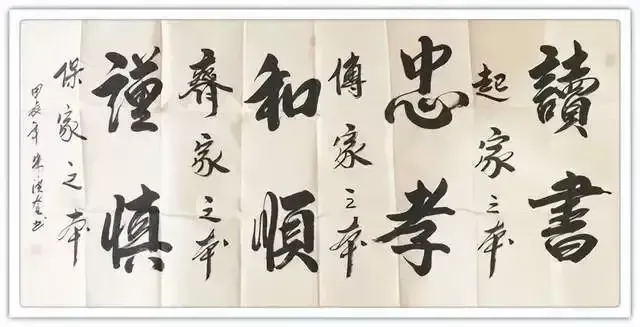 讀書
起家之本
忠孝
傳家之本
和順
齊家之本
謹慎
保家之本
甲辰年 朱洪奎书